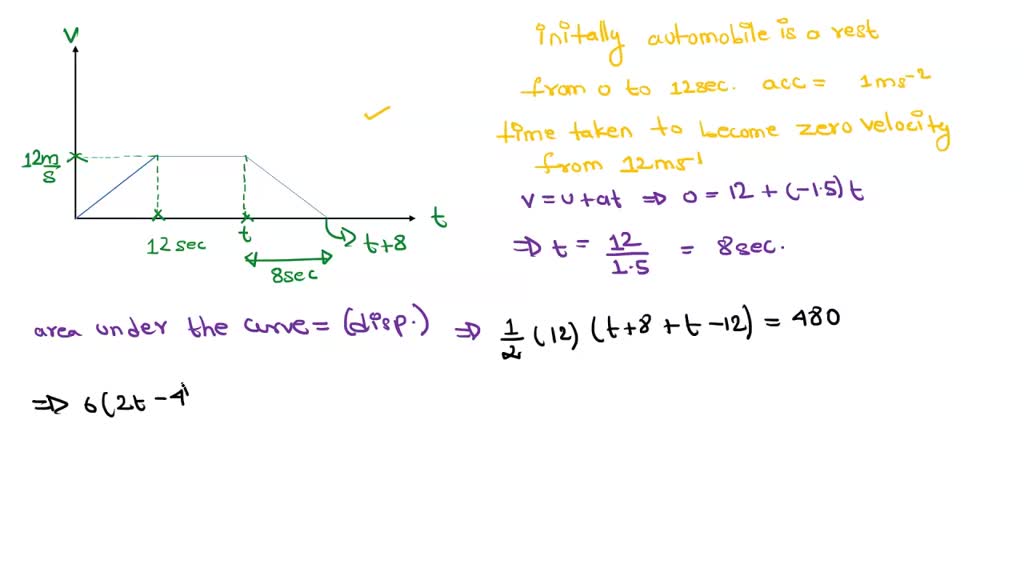 V
12m/s
12 sec
t
t+8
t
8sec
initally automobile is a rest
from 0 to 12sec. acc = 1ms⁻²
time taken to become zero velocity
from 12ms⁻¹
v = u + at ⇒ 0 = 12 + (-1.5) t
⇒ t = 12/1.5 = 8sec.
area under the curve = (disp.) ⇒ 1/2 (12) (t+8 + t -12) = 480
⇒ 6(2t - 4